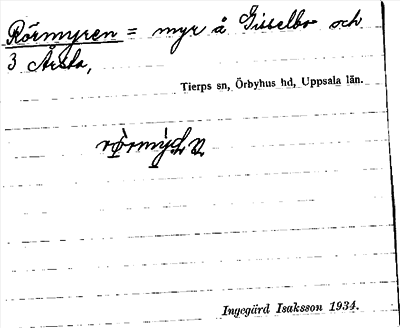 Rörmyren = myr å Gisselbo och
3 Årsta,
Tierps sn, Örbyhus hd, Uppsala län.
Ingegärd Isaksson 1934.